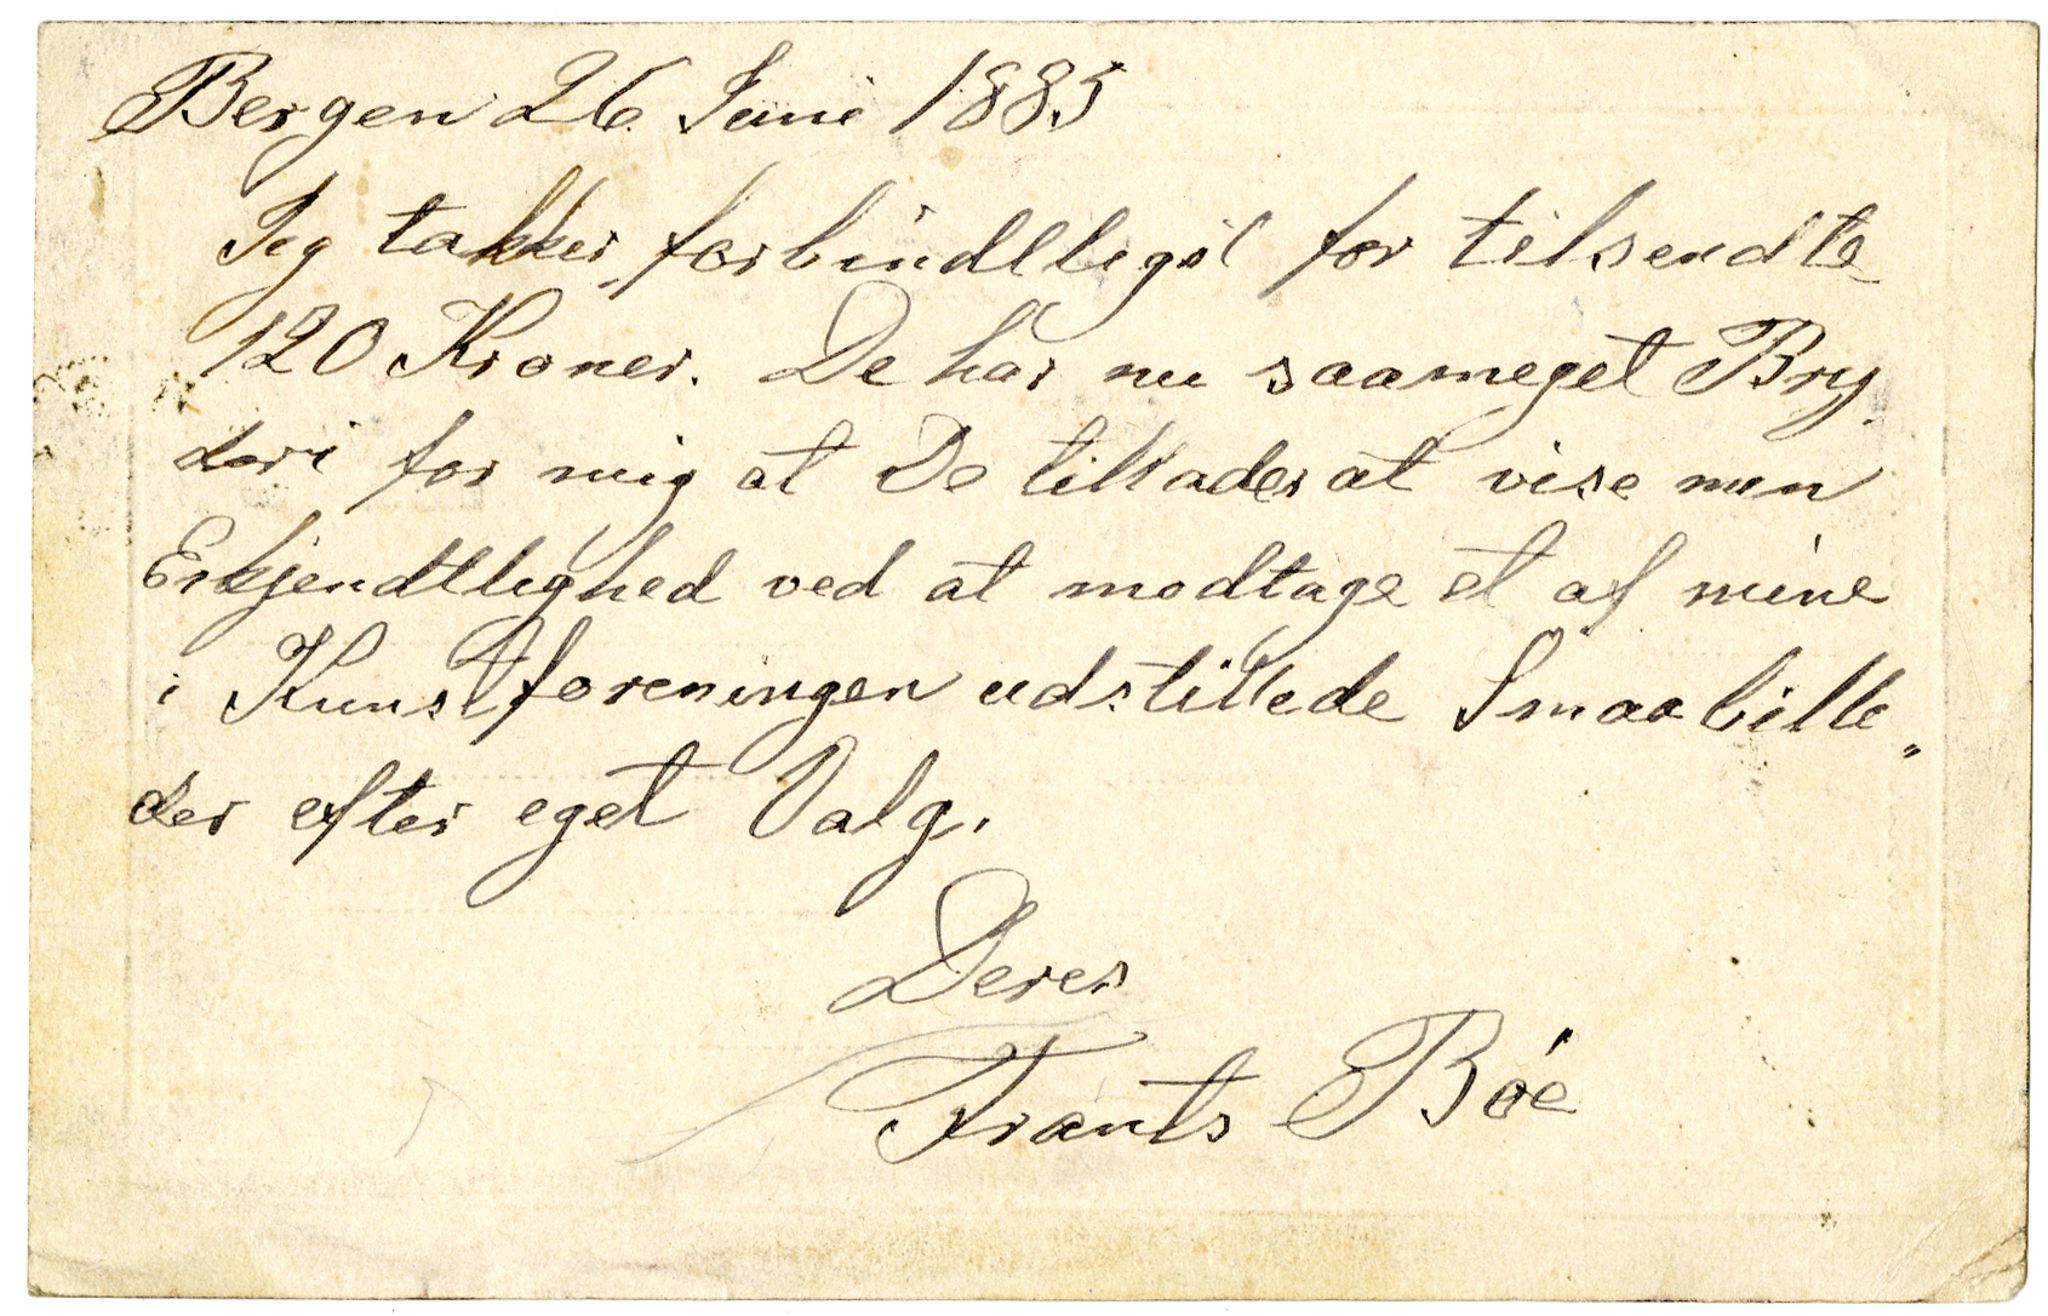 Bergen 26 Juni 1885
Jeg takker forbindtligst for tilsendte
120 Kroner. De har nu saameget Bry
deri for mig at De tillader at vise min
Erkjendtlighed ved at modtage et af mine
i Kunstforeningen udstillede Smaabille„
der efter eget Valg.
Deres
Frants Bøe